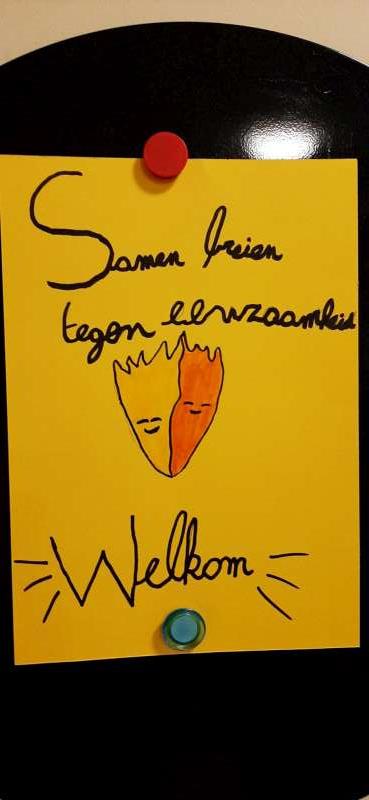 Samen breien
tegen eenzaamheid
Welkom